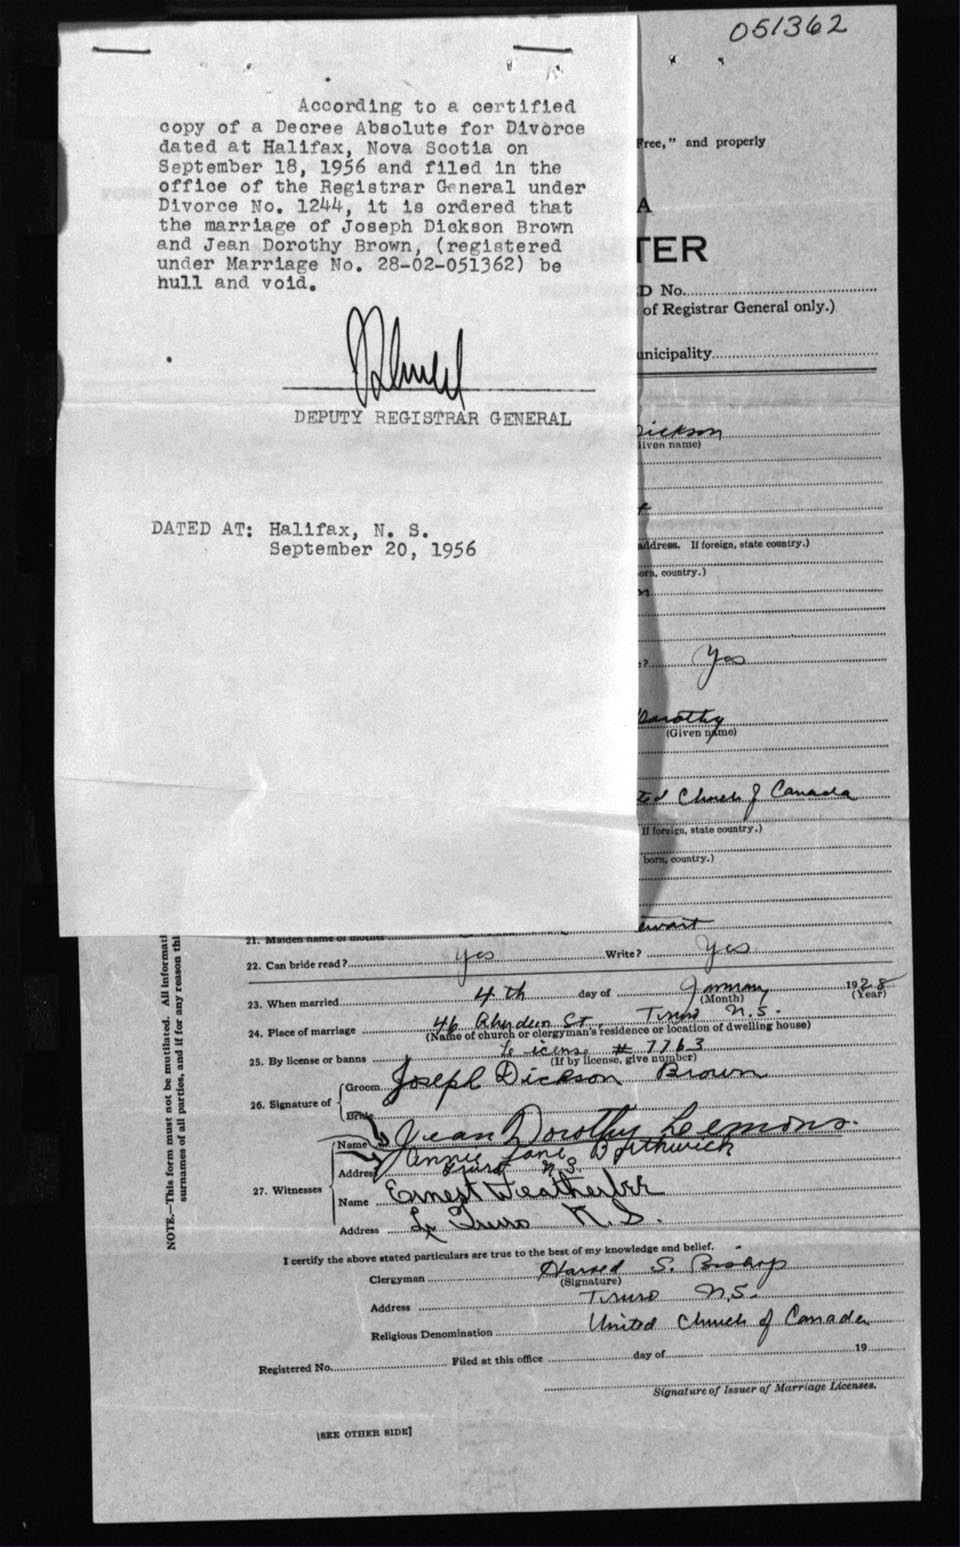 051362
According to a certified
copy of a Decree Absolute for Divorce
dated at Halifax, Nova Scotia on
September 18, 1956 and filed in the
office of the Registrar General under
Divorce No. 1244, it is ordered that
the marriage of Joseph Dickson Brown
and Jean Dorothy Brown, (registered
under Marriage No. 28-02-051362) be
hull and void.
DEPUTY REGISTRAR GENERAL
DATED AT: Halifax, N. S.
September 20, 1956
Free," and properly
A
TER
D No.
of Registrar General only.)
unicipality
Dickson
iven name)
address. If foreign, state country.)
orn, country.)
? Yes
Dorothy
(Given name)
ted Church of Canada
If foreign, state country.)
born, country.)
ewart
21. Maiden name of mother
22. Can bride read? Yes Write? Yes
23. When married 4th day of January 1928
(Month) (Year)
24. Place of marriage 46 Aberdeen St. Truro N.S.
(Name of church or clergyman's residence or location of dwelling house)
25. By license or banns License # 7763
(If by license, give number)
26. Signature of Groom Joseph Dickson Brown
Bride Jean Dorothy Lemons.
27. Witnesses Name Annie Jane Borthwick
Address Truro N.S.
Name Ernest Weatherbee
Address Truro N.S.
I certify the above stated particulars are true to the best of my knowledge and belief.
Clergyman Harold S. Bishop
(Signature)
Address Truro N.S.
Religious Denomination United Church of Canada
Registered No. Filed at this office day of 19
Signature of Issuer of Marriage Licenses.
[SEE OTHER SIDE]
NOTE.—This form must not be mutilated. All informati
surnames of all parties, and if for any reason thi